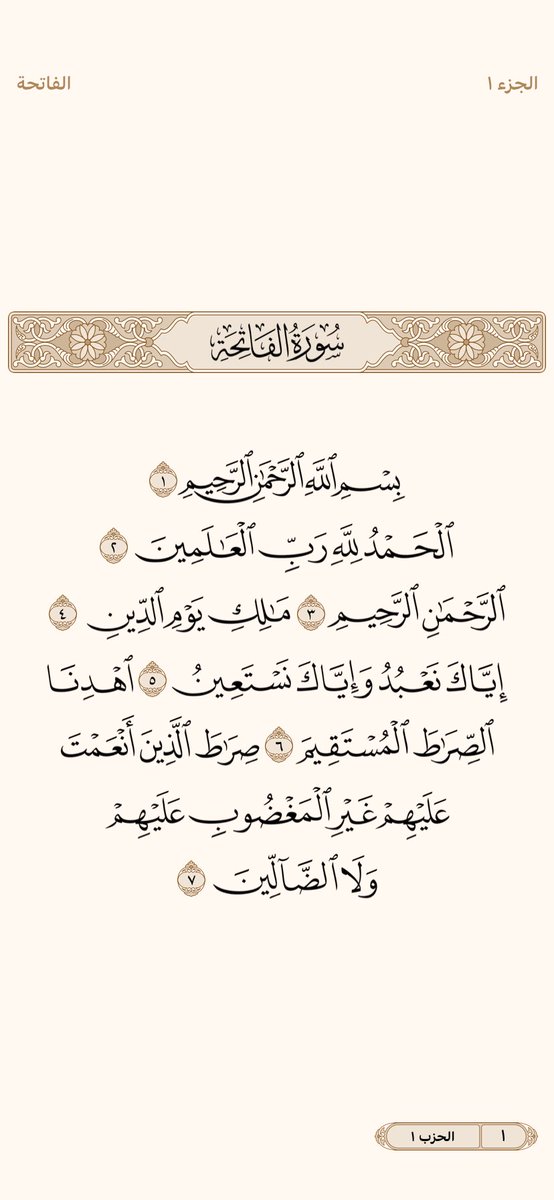 الجزء ١
الفاتحة
سُورَةُ الْفَاتِحَةِ
بِسْمِ ٱللَّهِ ٱلرَّحْمَٰنِ ٱلرَّحِيمِ ١
ٱلْحَمْدُ لِلَّهِ رَبِّ ٱلْعَٰلَمِينَ ٢
ٱلرَّحْمَٰنِ ٱلرَّحِيمِ ٣ مَٰلِكِ يَوْمِ ٱلدِّينِ ٤
إِيَّاكَ نَعْبُدُ وَإِيَّاكَ نَسْتَعِينُ ٥ ٱهْدِنَا
ٱلصِّرَٰطَ ٱلْمُسْتَقِيمَ ٦ صِرَٰطَ ٱلَّذِينَ أَنْعَمْتَ
عَلَيْهِمْ غَيْرِ ٱلْمَغْضُوبِ عَلَيْهِمْ
وَلَا ٱلضَّآلِّينَ ٧
١ الحزب ١